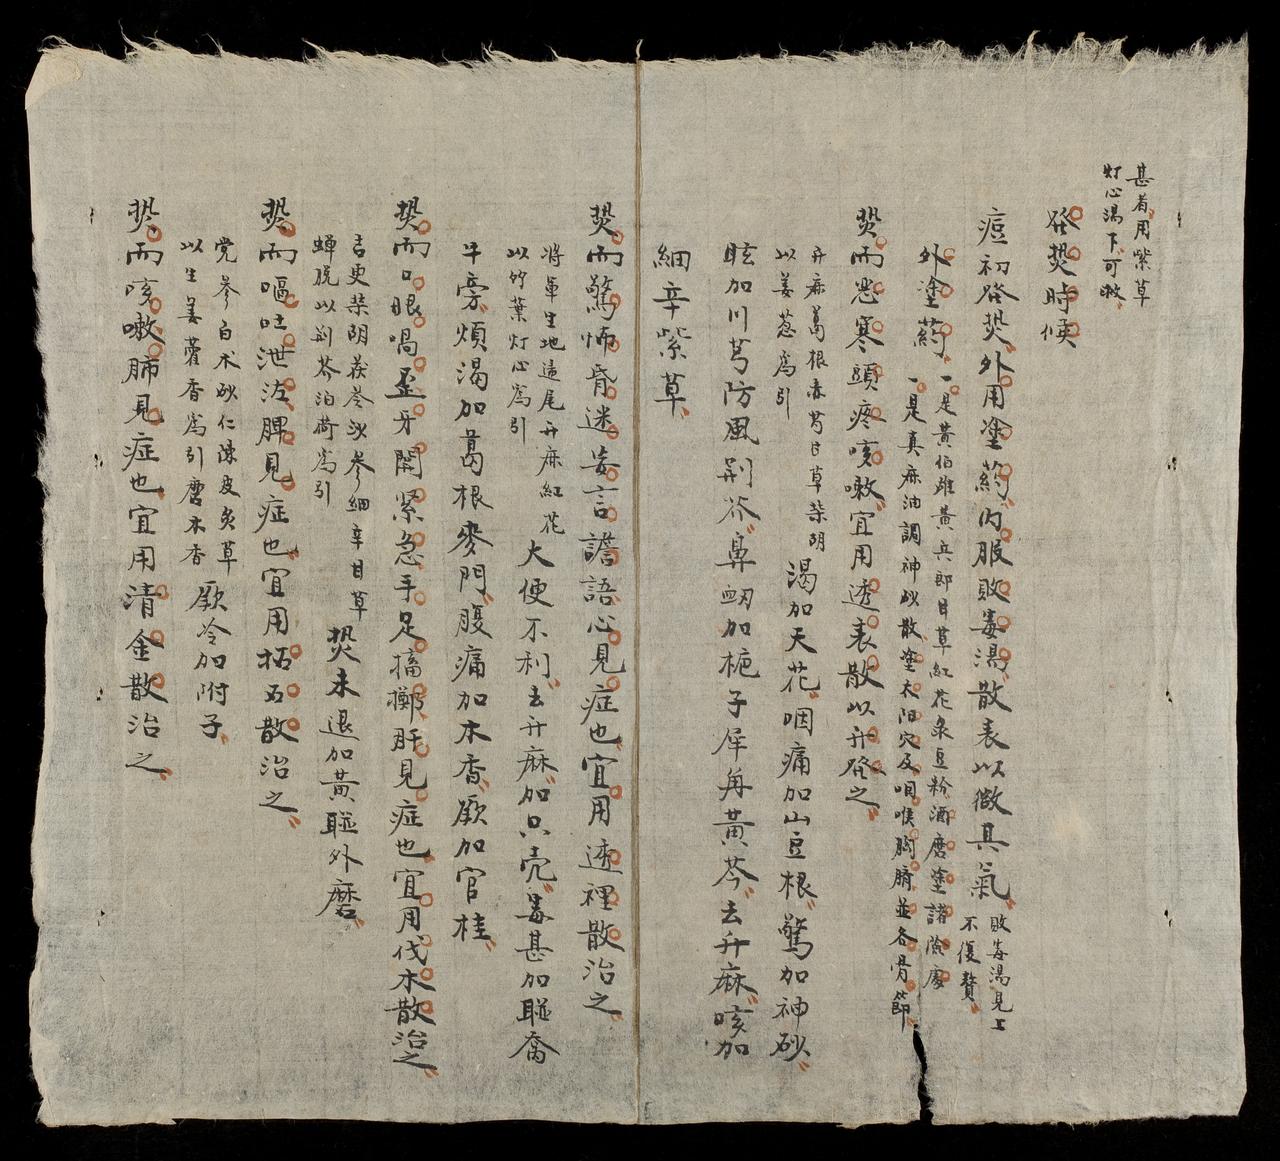 甚者用紫草
灯心湯下可救
發𤍠時候
痘初發𤍠外用塗葯内服敗毒湯散表以微其氣
敗毒湯見上
不復贅
外塗葯
一是黄伯雄黄兵郎甘草紅花彔豆粉酒磨塗諸險處
一是真麻油調神砂散塗太阳穴及咽喉胸臍並各骨節
𤍠而恶寒頭疼咳嗽宜用透表散以升發之
升麻葛根赤芍甘草柴胡
以姜葱為引
渴加天花咽痛加山豆根驚加神砂
眩加川芎防風荆芥鼻衄加栀子犀角黄芩去升麻咳加
細辛紫草
𤍠而驚怖昏迷妄言譫語心見症也宜用透裡散治之
將軍生地遠尾升麻紅花
以竹葉灯心為引
大便不利去升麻加只壳毒甚加聯喬
牛旁煩渴加葛根麥門腹痛加木香厥加官桂
𤍠而口眼喎歪牙関緊急手足搐搦肝見症也宜用伐木散治之
吉更柴胡茯苓沙參細辛甘草
蝉脱以荆芥泊荷為引
𤍠未退加黄聯外磨
𤍠而嘔吐泄泻脾見症也宜用拓五散治之
党參白术砂仁陳皮炙草
以生姜藿香為引磨木香
厥冷加附子
𤍠而咳嗽肺見症也宜用清金散治之